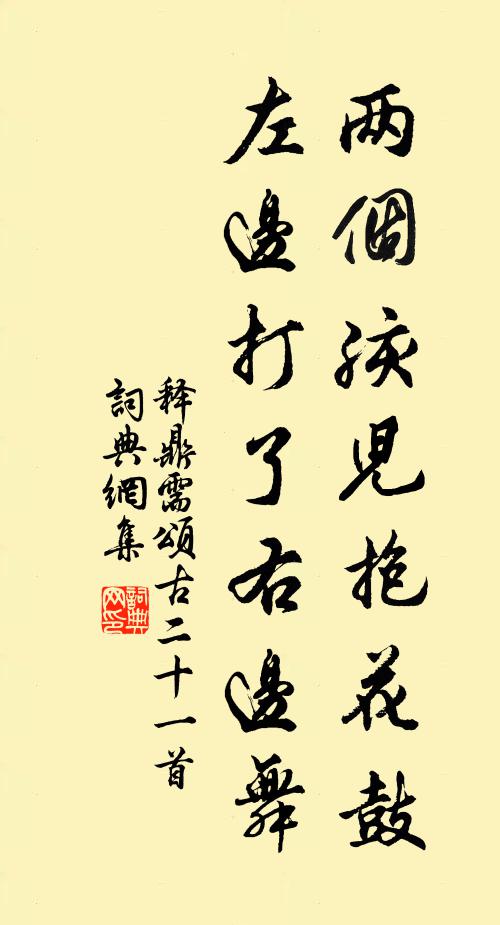 两個孩児抱花鼓
左邊打了右邊舞
释鼎需頌古二十一首
詞典網集
詞典网印